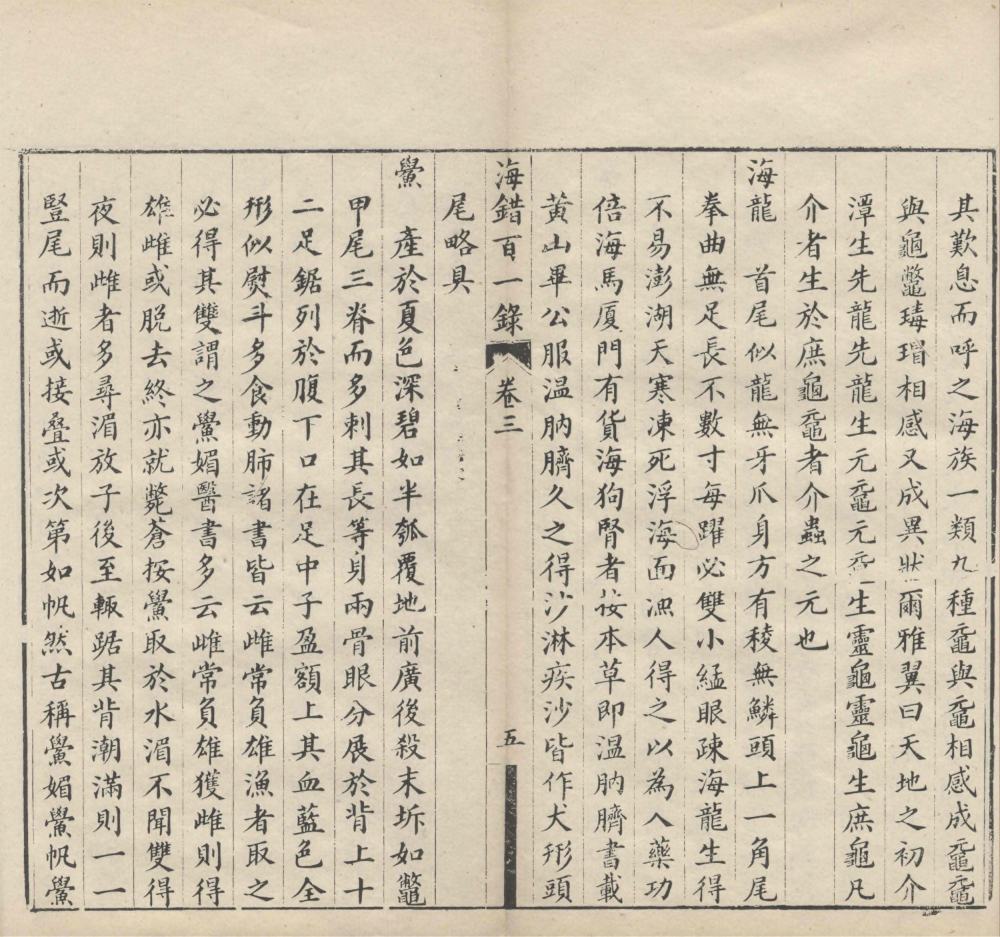 其歎息而呼之海族一類九種黿與黿相感成黿黿
與龜鼈瑇瑁相感又成異狀爾雅翼曰天地之初介
潭生先龍先龍生元黿元黿生靈龜靈龜生庶龜凡
介者生於庶龜黿者介蟲之元也
海龍　首尾似龍無牙爪身方有稜無鱗頭上一角尾
拳曲無足長不數寸每躍必雙小緼眼疎海龍生得
不易澎湖天寒凍死浮海面漁人得之以為入藥功
倍海馬厦門有貨海狗腎者按本草即温肭臍書載
黄山畢公服温肭臍久之得沙淋疾沙皆作犬形頭
尾略具
海錯百一錄　卷三　五
鱟　產於夏色深碧如半瓠覆地前廣後殺末坼如鼈
甲尾三脊而多刺其長等身兩骨眼分展於背上十
二足鋸列於腹下口在足中子盈額上其血藍色全
形似熨斗多食動肺諸書皆云雌常負雄漁者取之
必得其雙謂之鱟媚醫書多云雌常負雄獲雌則得
雄雌或脫去終亦就斃蒼按鱟取於水湄不聞雙得
夜則雌者多尋湄放子後至輙踞其背潮滿則一一
豎尾而逝或接叠或次第如帆然古稱鱟媚鱟帆鱟